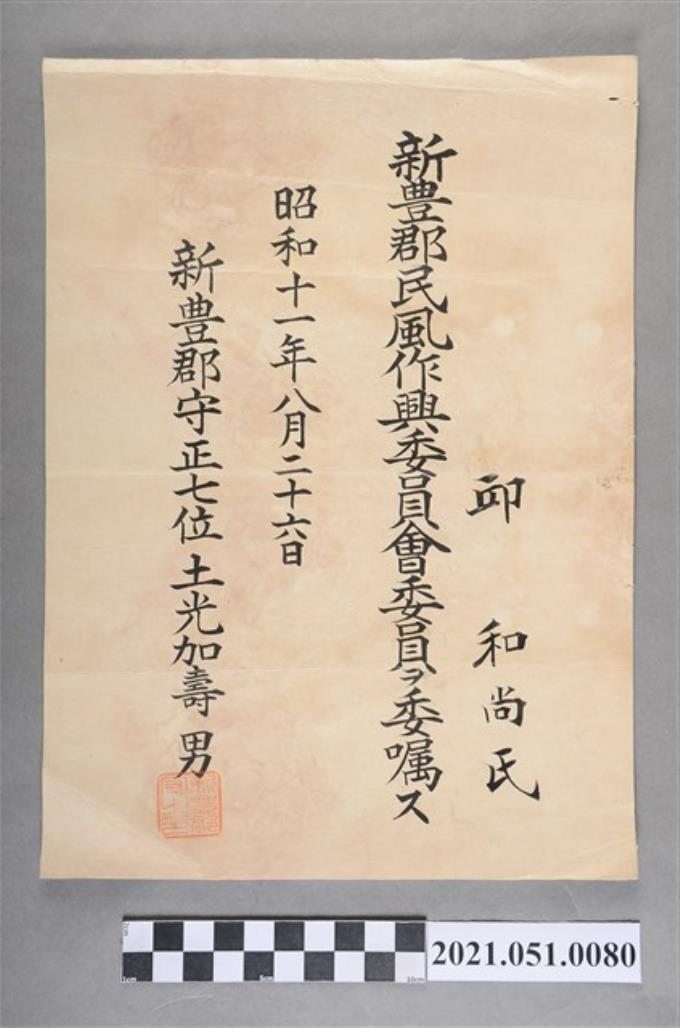 邱 和尚氏
新豊郡民風作興委員會委員ヲ委嘱ス
昭和十一年八月二十六日
新豊郡守正七位 土光加壽男
1cm 5cm 10cm
2021.051.0080